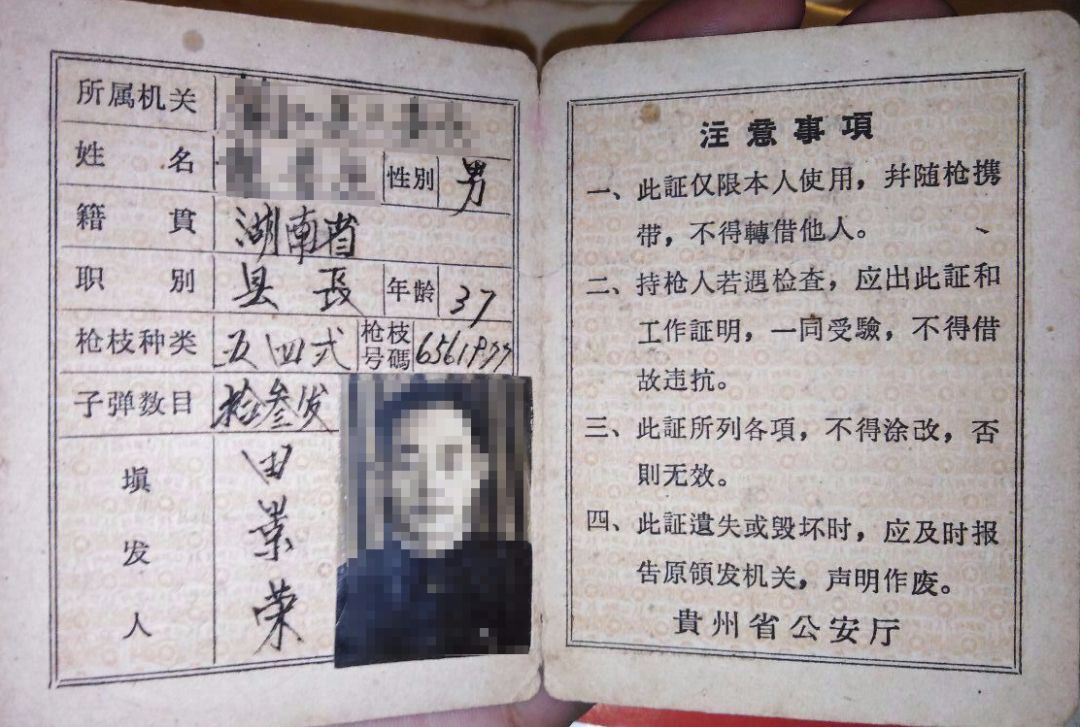 所属机关
姓名
性别 男
籍貫 湖南省
职别 县長 年龄 37
枪枝种类 五四式 枪枝号碼 6561977
子弹数目 拾叁发
填发人 田業荣
注意事項
一、此証仅限本人使用，幷随枪携
带，不得轉借他人。
二、持枪人若遇检查，应出此証和
工作証明，一同受驗，不得借
故违抗。
三、此証所列各項，不得涂改，否
則无效。
四、此証遺失或毁坏时，应及时报
告原領发机关，声明作废。
貴州省公安厅